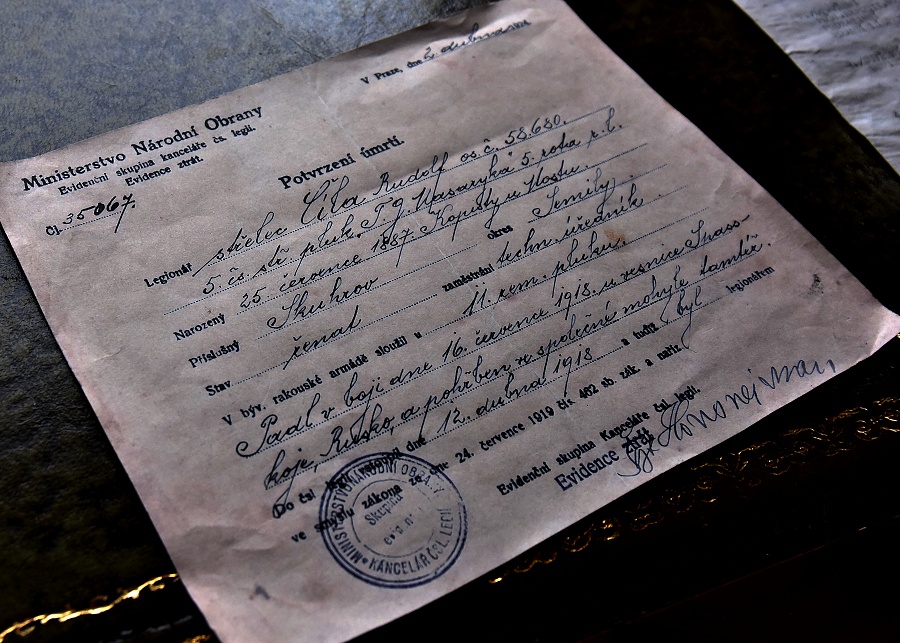 V Praze, dne 2. dubna
Ministerstvo Národní Obrany
Evidenční skupina kanceláře čs. legií.
Evidence ztrát.
Čj. 35067.
Potvrzení úmrtí.
Legionář střelec Cíla Rudolf os. č. 58.680.
5. čs. stř. pluk „T. G. Masaryka“ 5. rota r. l.
Narozený 25. července 1887 Kopisty u Mostu.
Příslušný Skuhrov okres Semily.
Stav ženat zaměstnání techn. úředník.
V býv. rakouské armádě sloužil u 11. zem. pluku.
Padl v boji dne 16. července 1918. u vesnice Spass-
koje, Rusko, a pohřben ve společné mohyle tamtéž.
Do čsl. legií dne 12. dubna 1918 a tudíž byl legionářem
ve smyslu zákona ze dne 24. července 1919 čís. 462 sb. zák. a nař.
Evidenční skupina Kanceláře čsl. legií.
Evidence ztrát
MINISTERSTVO NÁRODNÍ OBRANY
KANCELÁŘ ČSL. LEGIÍ
Skupina